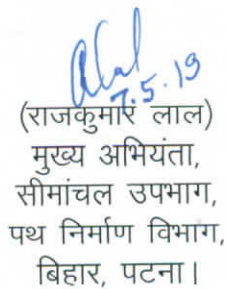 7.5.19
(राजकुमार लाल)
मुख्य अभियंता,
सीमांचल उपभाग,
पथ निर्माण विभाग,
बिहार, पटना।